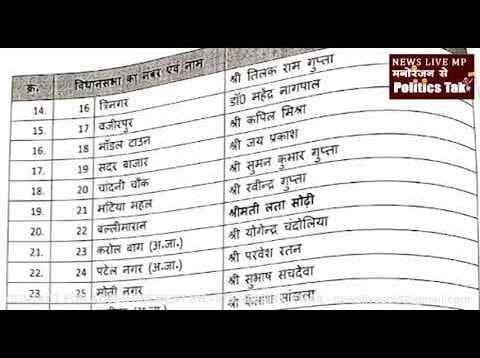 NEWS LIVE MP
मनोरंजन से
Politics Tak
क्र. विधानसभा का नंबर एवं नाम
14. 16 त्रिनगर श्री तिलक राम गुप्ता
15. 17 वजीरपुर डॉ0 महेंद्र नागपाल
16. 18 मॉडल टाउन श्री कपिल मिश्रा
17. 19 सदर बाजार श्री जय प्रकाश
18. 20 चांदनी चौंक श्री सुमन कुमार गुप्ता
19. 21 मटिया महल श्री रवीन्द्र गुप्ता
20. 22 बल्लीमारान श्रीमती लता सोढ़ी
21. 23 करोल बाग (अ.जा.) श्री योगेन्द्र चंदोलिया
22. 24 पटेल नगर (अ.जा.) श्री परवेश रतन
23. 25 मोती नगर श्री सुभाष सचदेवा
(अ.जा.) श्री कैलाश सांखला